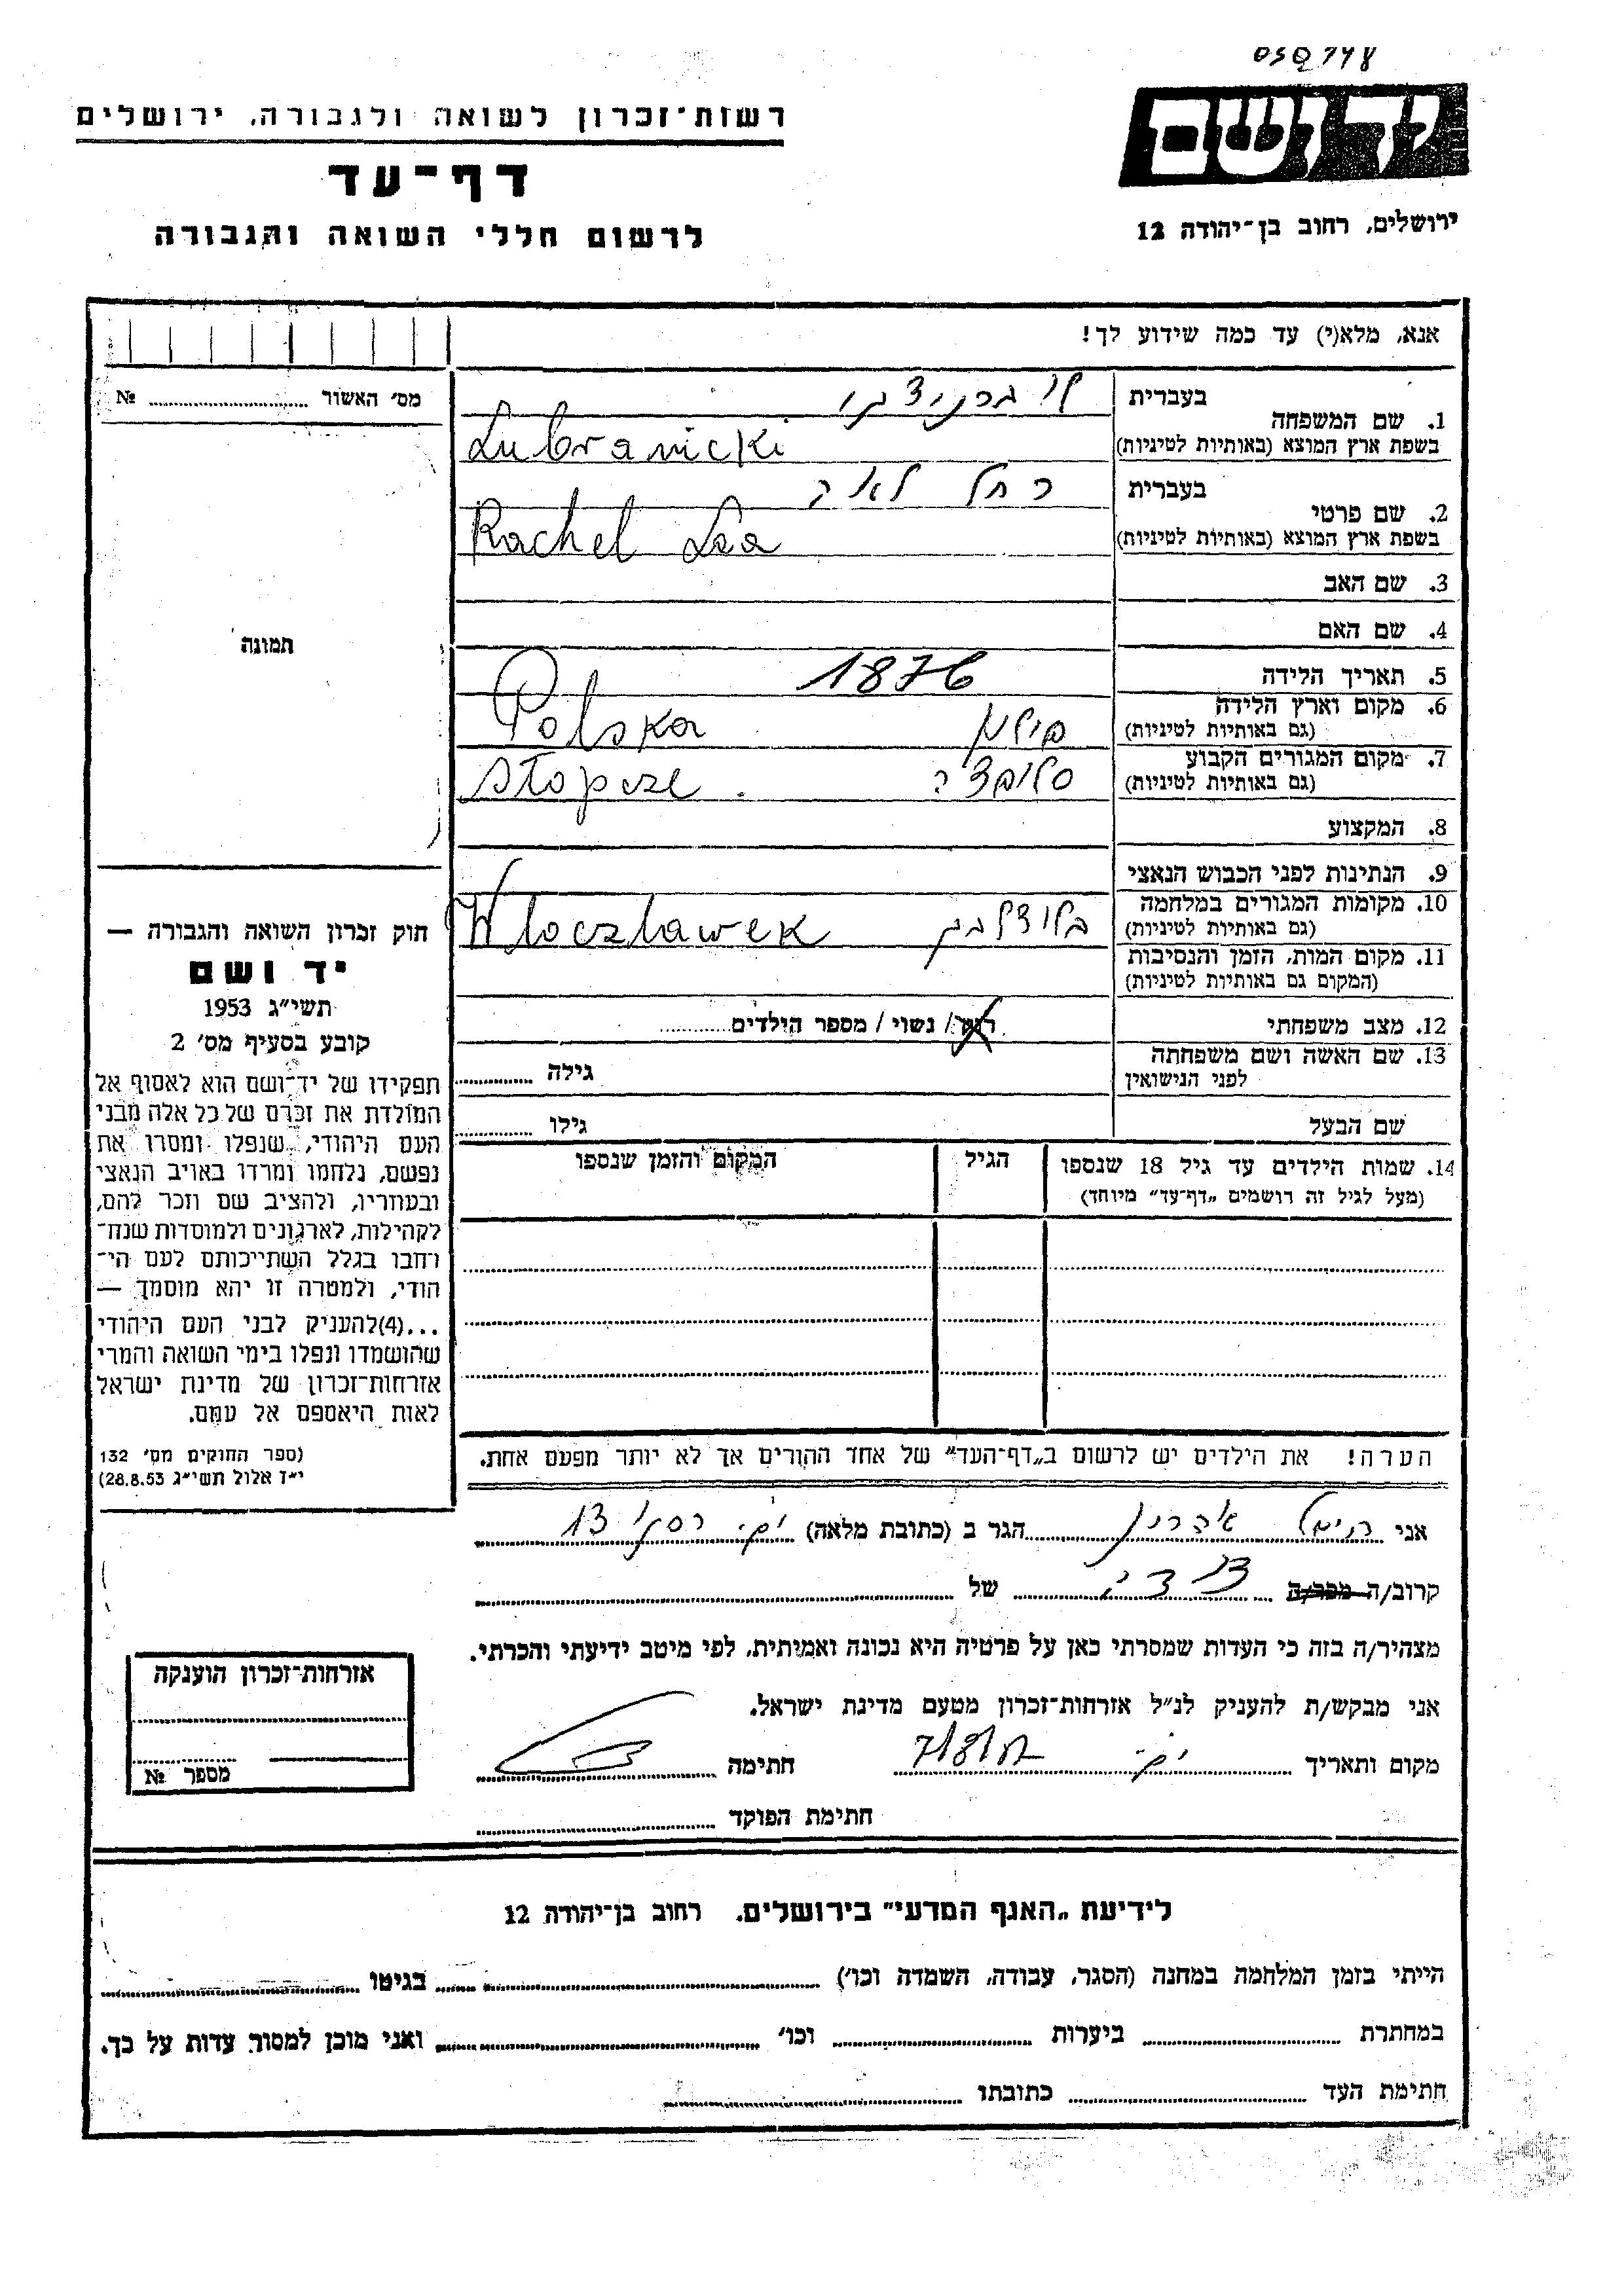 050748
יד ושם
רשות־זכרון לשואה ולגבורה, ירושלים
דף־עד
לרשום חללי השואה והגבורה
ירושלים, רחוב בן־יהודה 12
אנא, מלא(י) עד כמה שידוע לך!
מס׳ האשור № 
1. שם המשפחה
בעברית
בשפת ארץ המוצא (באותיות לטיניות)
Lubranicki
2. שם פרטי
בעברית רחל לאה
בשפת ארץ המוצא (באותיות לטיניות)
Rachel Lea
3. שם האב
4. שם האם
תמונה
5. תאריך הלידה 1876
6. מקום וארץ הלידה
(גם באותיות לטיניות) פולין Polska
7. מקום המגורים הקבוע
(גם באותיות לטיניות)
8. המקצוע
9. הנתינות לפני הכבוש הנאצי
10. מקומות המגורים במלחמה
(גם באותיות לטיניות) Wloczlawek
11. מקום המות, הזמן והנסיבות
(המקום גם באותיות לטיניות)
12. מצב משפחתי רווק / נשוי / מספר הילדים
13. שם האשה ושם משפחתה
לפני הנישואין גילה
שם הבעל גילו
14. שמות הילדים עד גיל 18 שנספו
(מעל לגיל זה רושמים „דף־עד״ מיוחד)
הגיל
המקום והזמן שנספו
חוק זכרון השואה והגבורה —
יד ושם
תשי״ג 1953
קובע בסעיף מס׳ 2
תפקידו של יד־ושם הוא לאסוף אל
המולדת את זכרם של כל אלה מבני
העם היהודי, שנפלו ומסרו את
נפשם, נלחמו ומרדו באויב הנאצי
ובעוזריו, ולהציב שם וזכר להם,
לקהילות, לארגונים ולמוסדות שנח־
רחבו בגלל השתייכותם לעם הי־
הודי, ולמטרה זו יהא מוסמך —
...(4)להעניק לבני העם היהודי
שהושמדו ונפלו בימי השואה והמרי
אזרחות־זכרון של מדינת ישראל
לאות היאספם אל עמם.
(ספר החוקים מס׳ 132
י״ז אלול תשי״ג 28.8.53)
הערה! את הילדים יש לרשום ב„דף־העד״ של אחד ההורים אך לא יותר מפעם אחת.
אני אהרון הגר ב (כתובת מלאה) 13
קרוב/ה מכר/ה של
מצהיר/ה בזה כי העדות שמסרתי כאן על פרטיה היא נכונה ואמיתית, לפי מיטב ידיעתי והכרתי.
אני מבקש/ת להעניק לנ״ל אזרחות־זכרון מטעם מדינת ישראל.
מקום ותאריך חתימה
חתימת הפוקד
אזרחות־זכרון הוענקה
מספר №
לידיעת „האגף המדעי״ בירושלים, רחוב בן־יהודה 12
הייתי בזמן המלחמה במחנה (הסגר, עבודה, השמדה וכו׳) בגיטו
במחתרת ביערות וכו׳ ואני מוכן למסור עדות על כך.
חתימת העד כתובתו